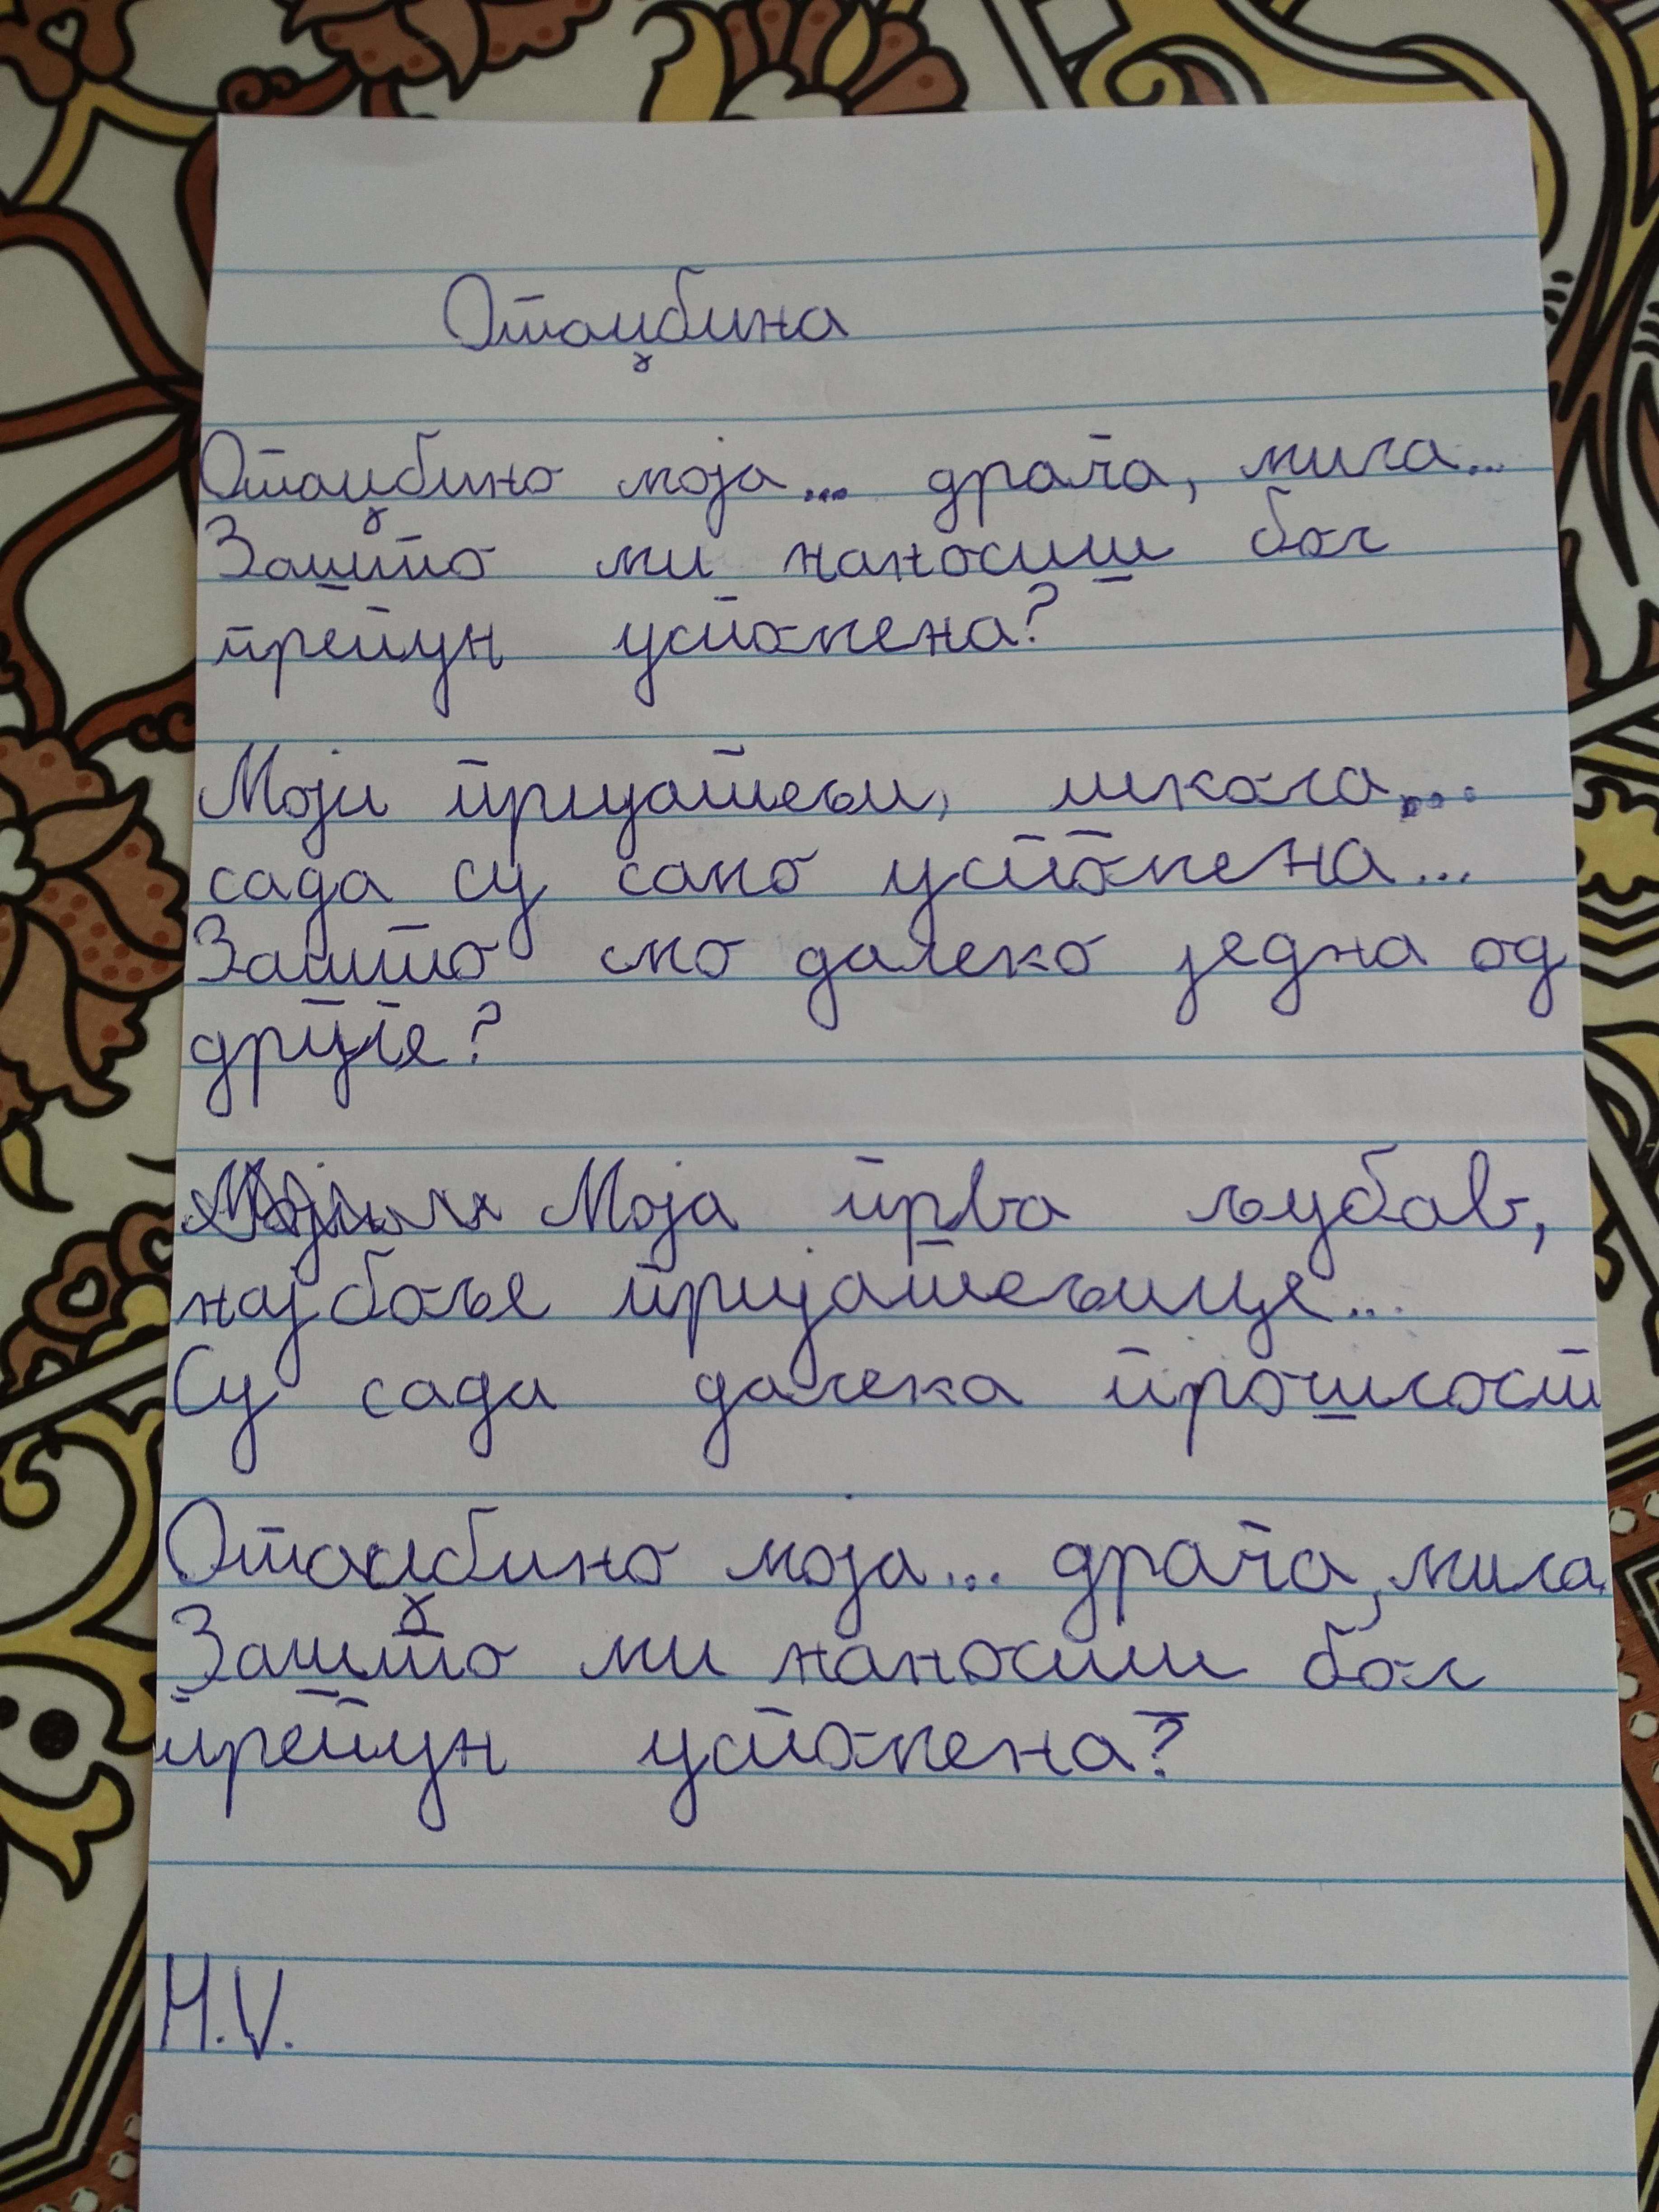 Отаџбина
Отаџбино моја... драга, мила...
Зашто ми наносиш бол
препун успомена?
Моји пријатељи, школа,...
сада су само успомена...
Зашто смо далеко једна од
друге?
Моја прва љубав,
најбоље пријатељице...
Су сада далека прошлост
Отаџбино моја... драга, мила
Зашто ми наносиш бол
препун успомена?
H.V.